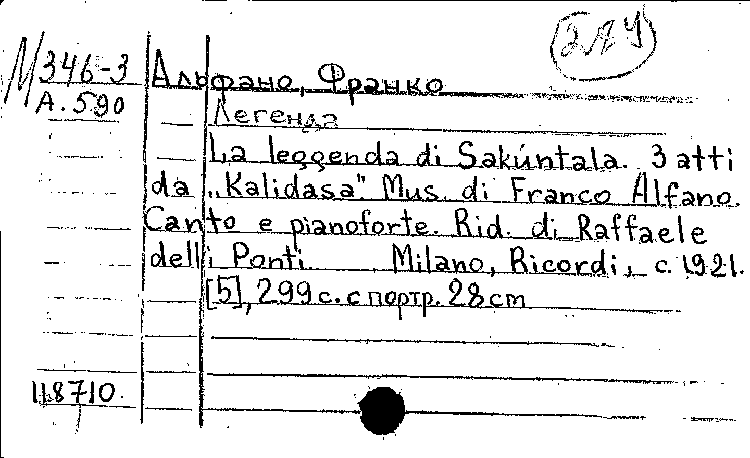 М 346-3
А.590
Альфано, Франко
Легенда
La leggenda di Sakúntala. 3 atti
da „Kalidasa". Mus. di Franco Alfano.
Canto e pianoforte. Rid. di Raffaele
delli Ponti Milano, Ricordi, c. 1921.
[5], 299 с. с портр. 28 cm
118710.